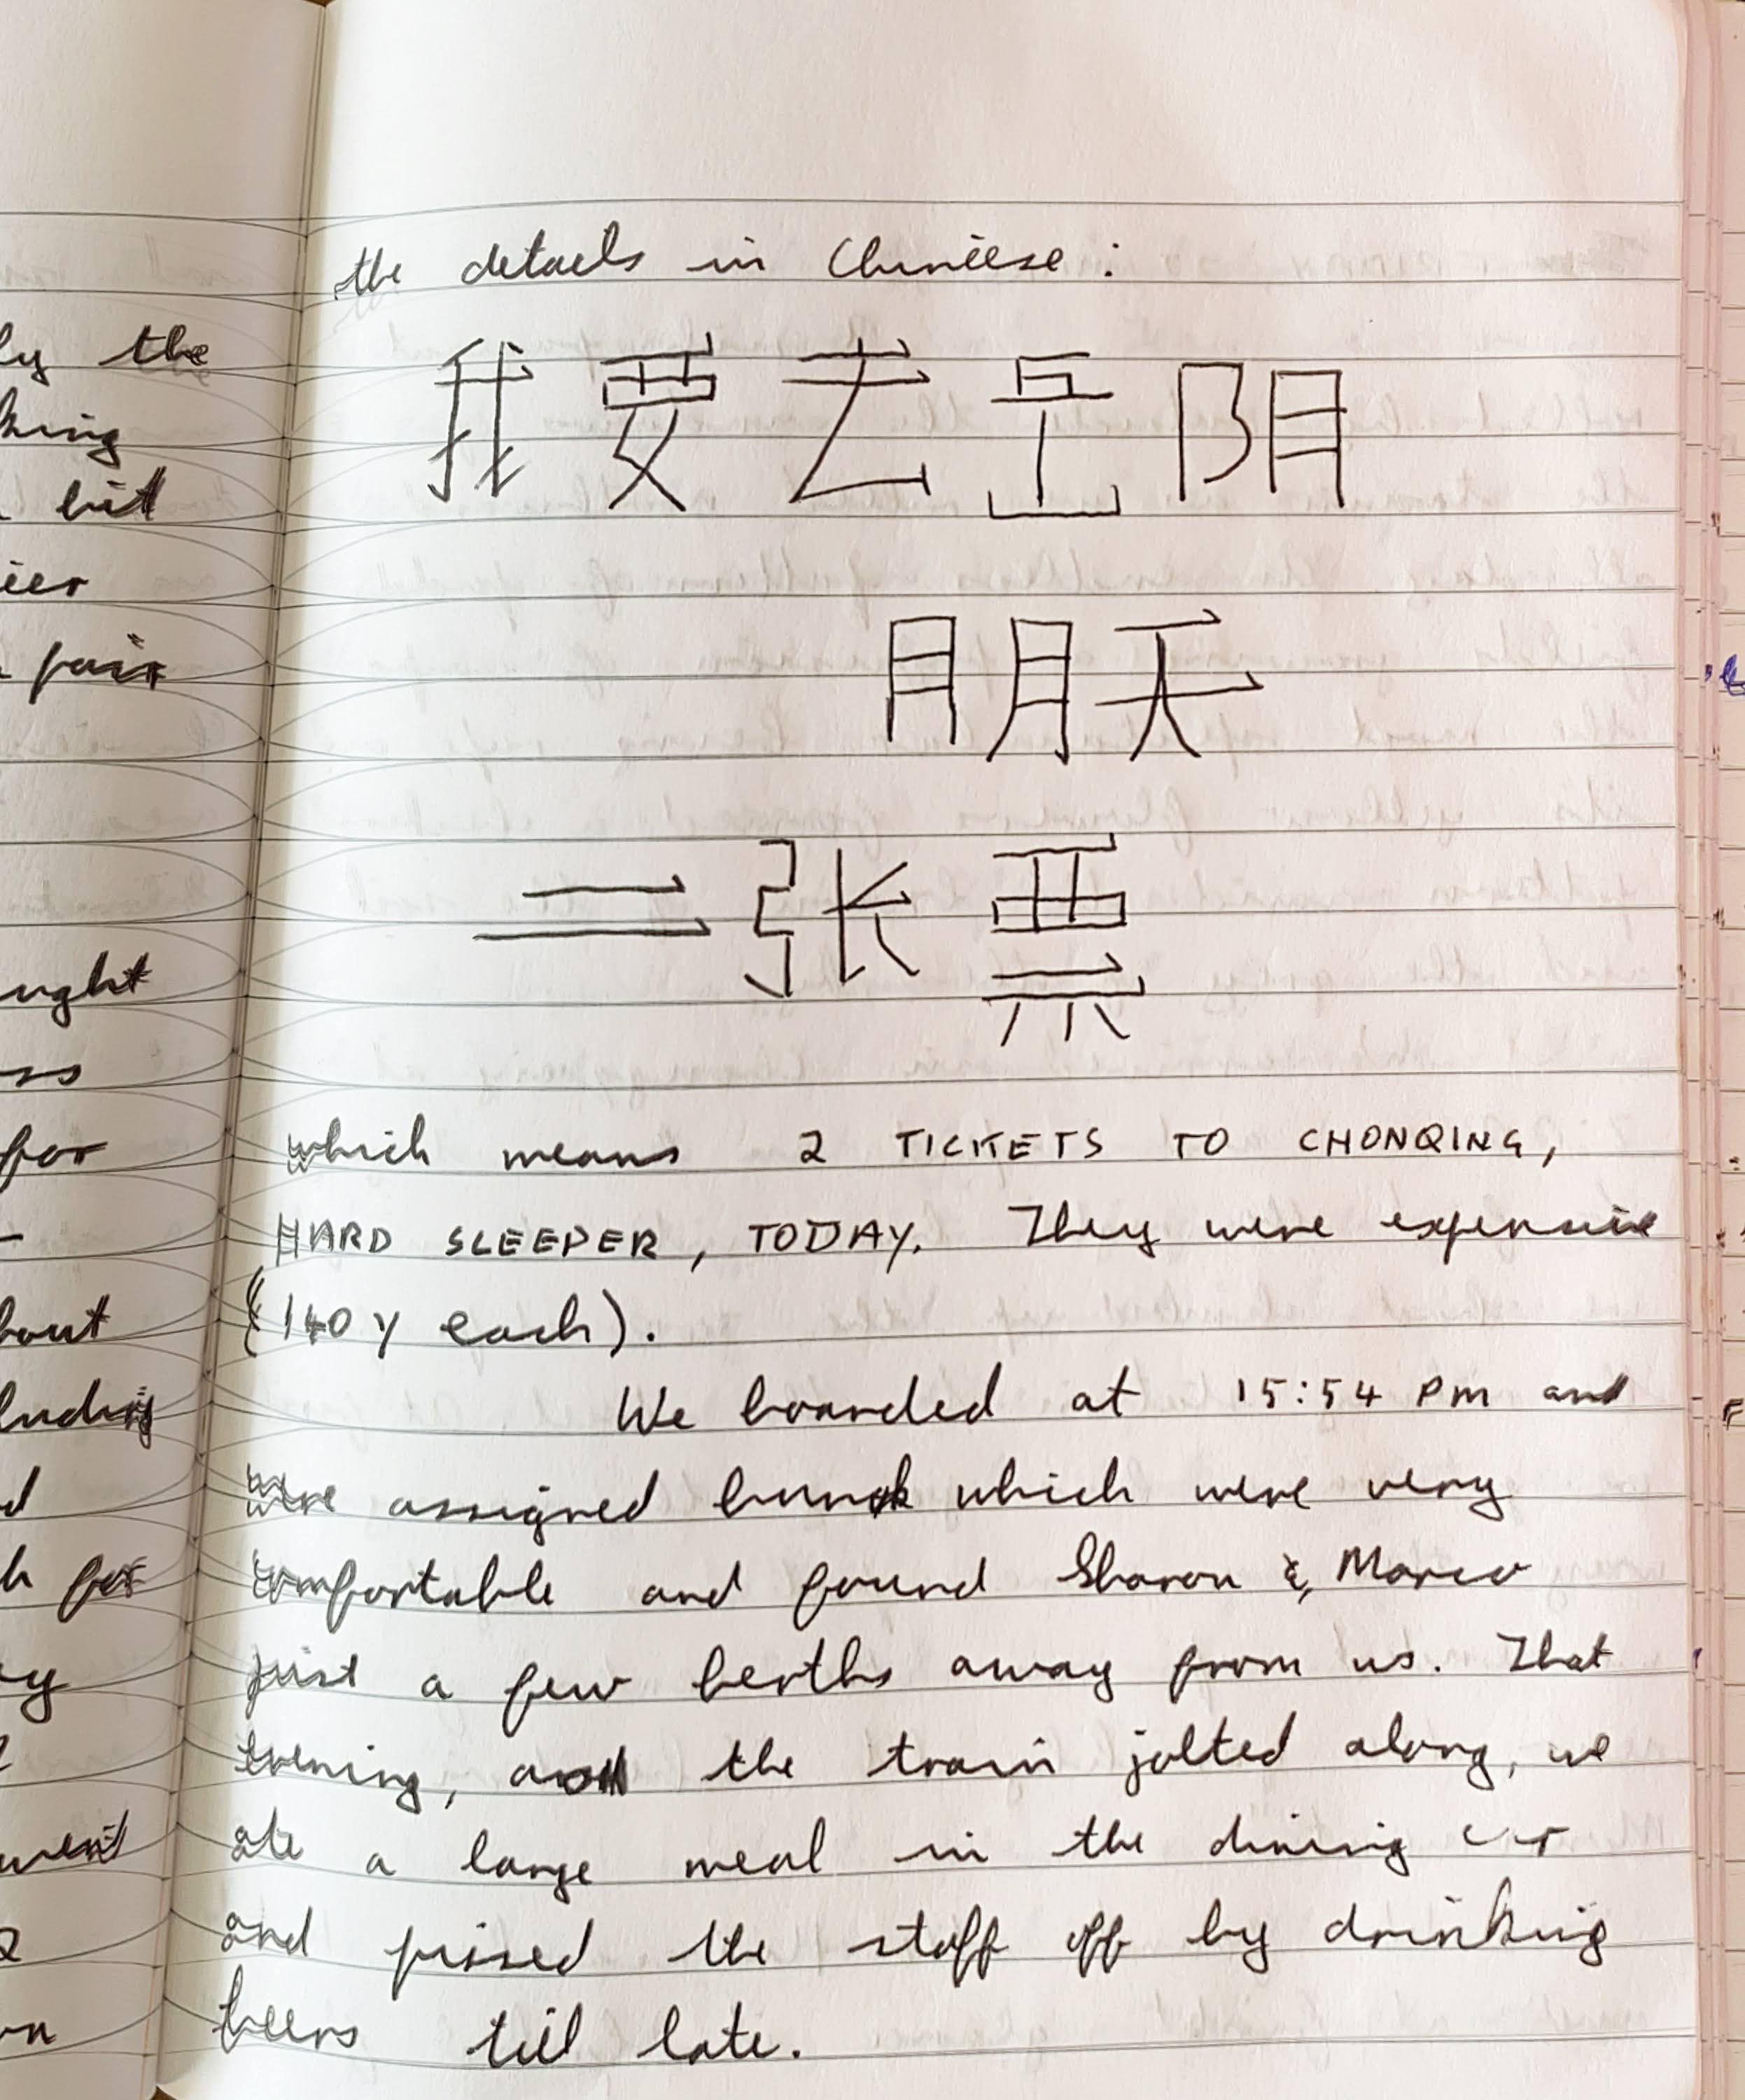 ly the
king
bit
ier
pair
ught
ss
for
bout
luding
d
h for
y
went
the details in Chinese:
我要去岳阴
朋天
二张票
which means 2 TICKETS TO CHONQING,
HARD SLEEPER, TODAY. They were expensive
(140 Y each).
We boarded at 15:54 PM and
were assigned bunk which were very
comfortable and found Sharon & Marco
just a few berths away from us. That
evening, as the train jolted along, we
ate a large meal in the dining car
and pissed the staff off by drinking
beers till late.